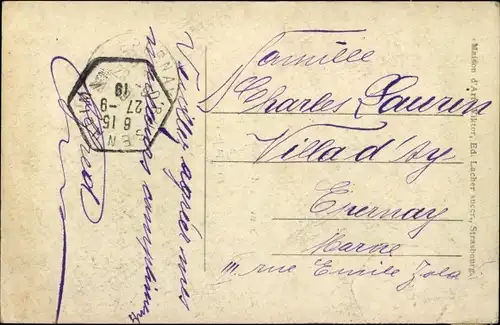 Veuillez agréer mes
meilleurs compliments
Famille
Charles Laurin
Villa d'Ay
Epernay
Marne
111 rue Emile Zola
8 15
27 -9
19
Maison d'Art Viktor, Ed. Lacher succr., Strasbourg.